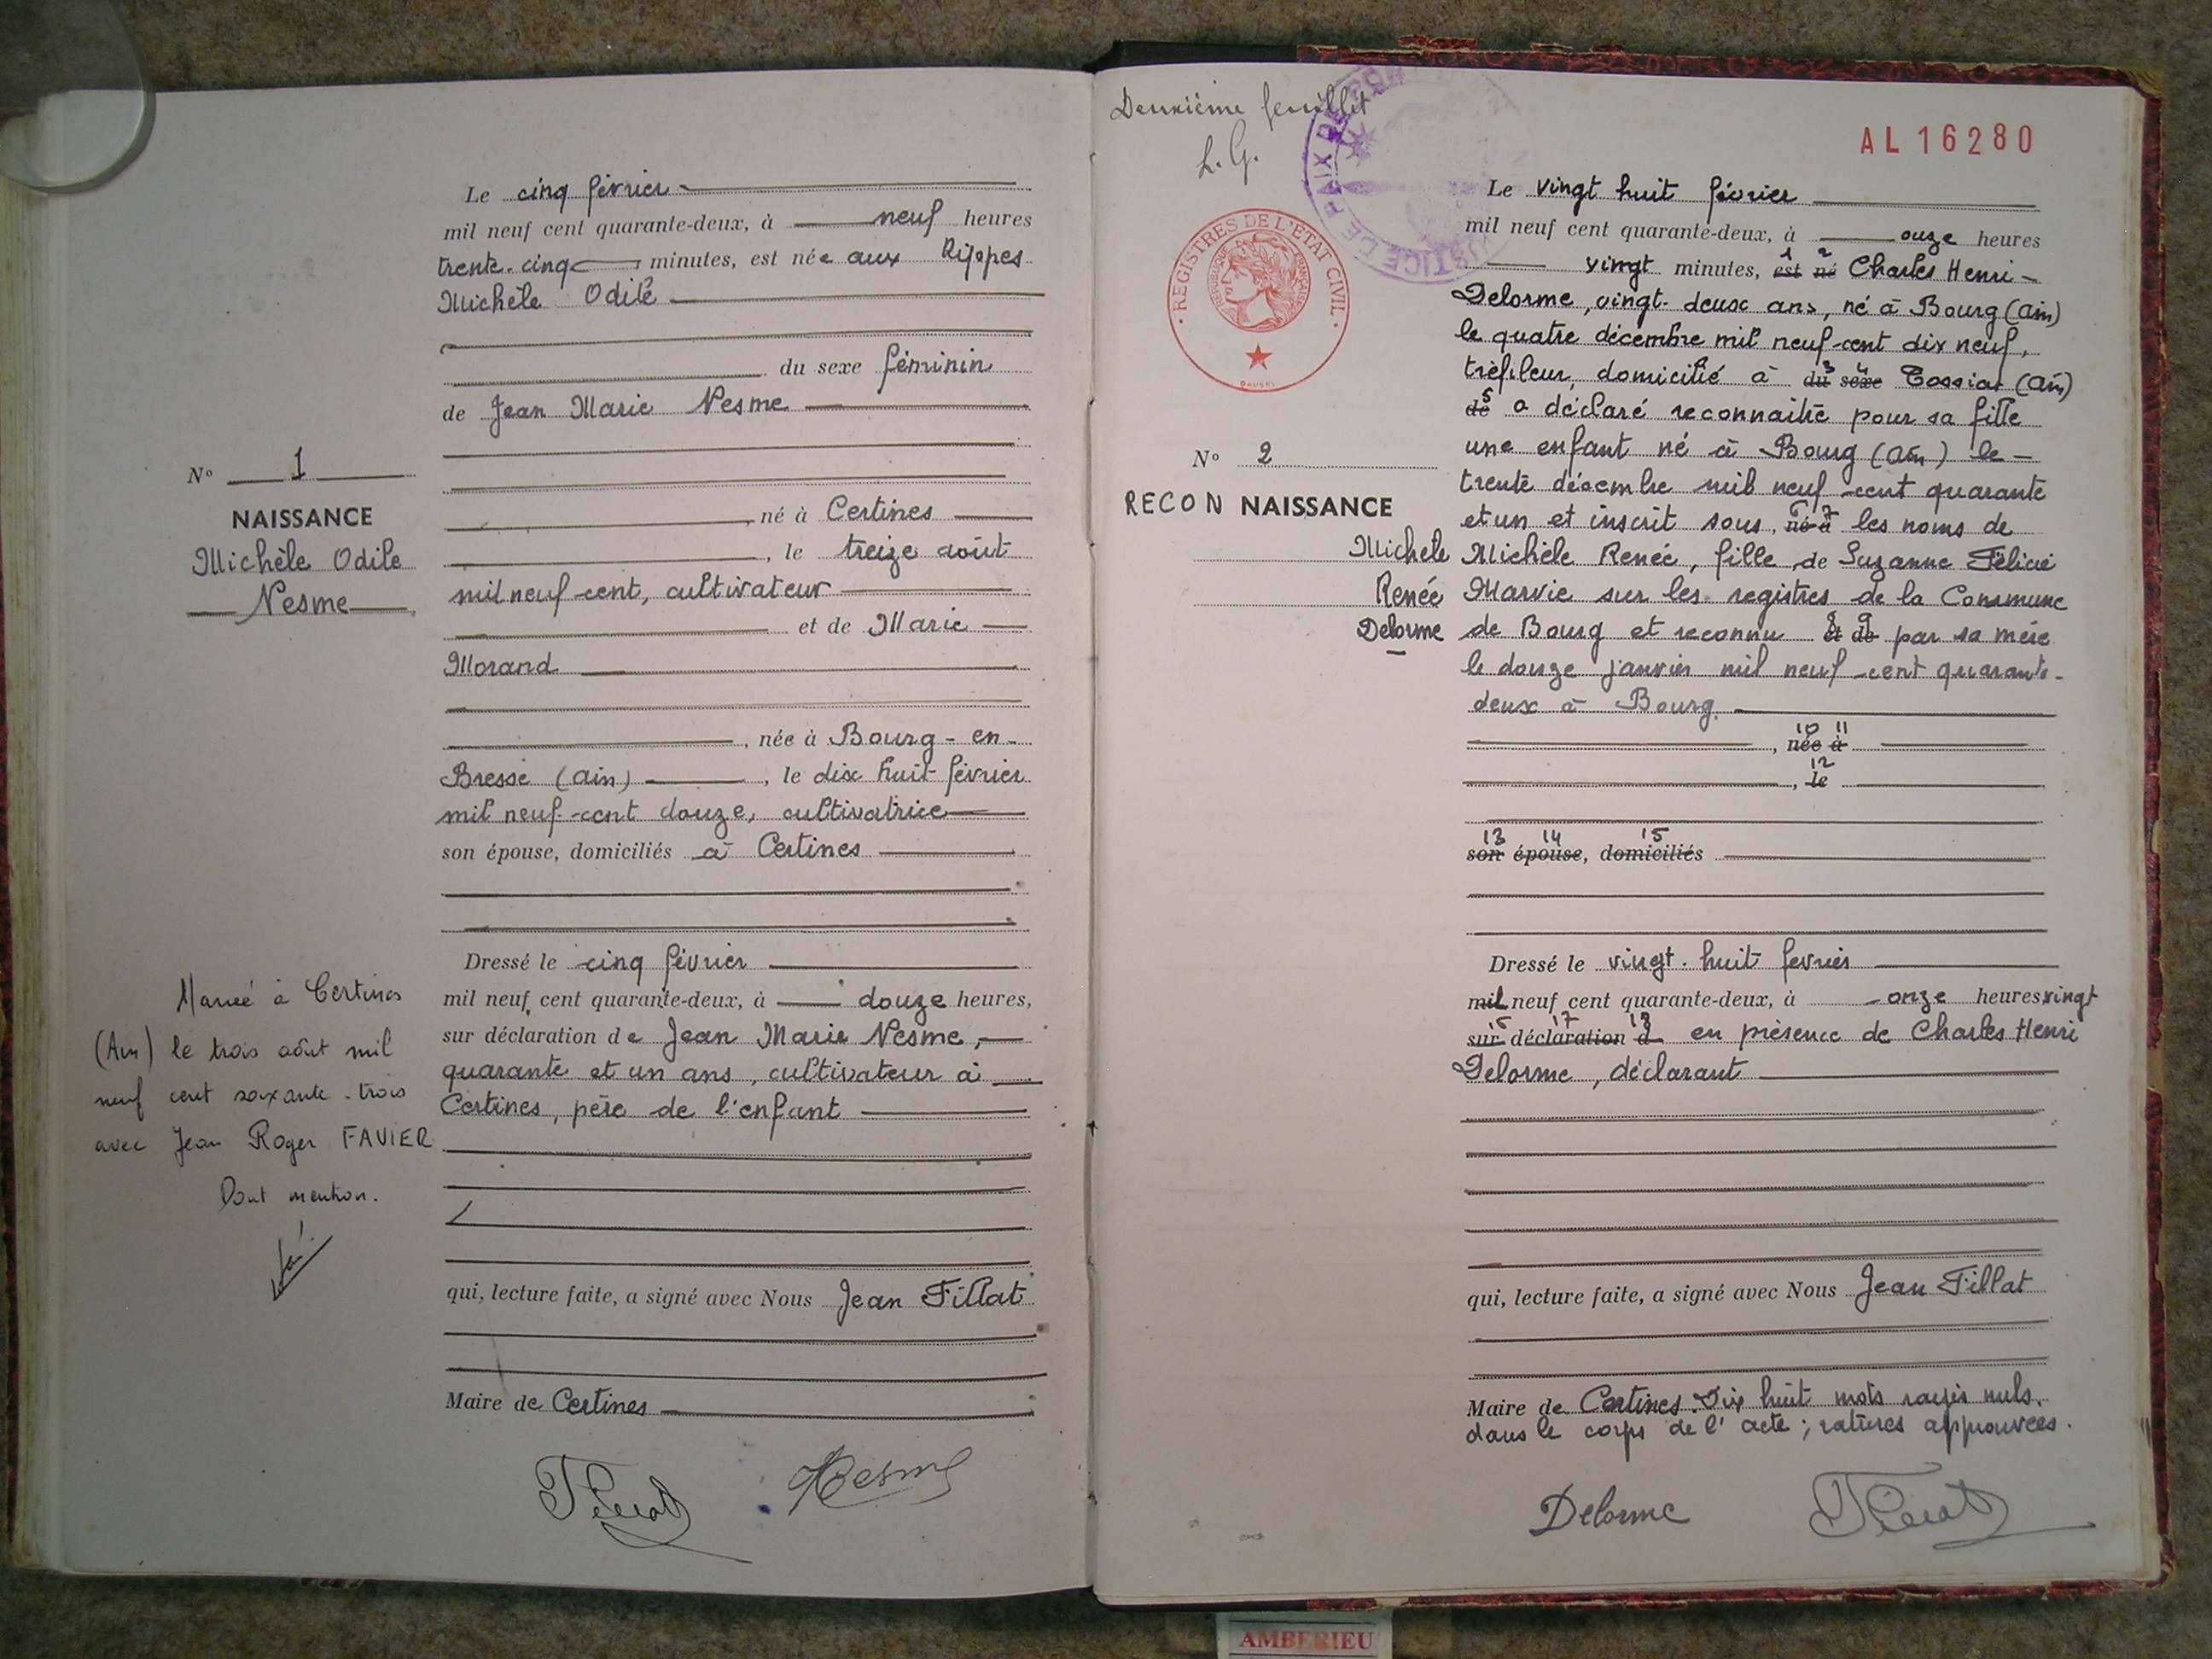 Le cinq février
mil neuf cent quarante-deux, à neuf heures
trente-cinq minutes, est née aux Rippes
Michèle Odile
du sexe féminin
de Jean Marie Nesme
né à Certines
, le treize août
mil neuf-cent, cultivateur
et de Marie
Morand
, née à Bourg-en-
Bresse (Ain), le dix huit février
mil neuf-cent douze, cultivatrice
son épouse, domiciliés à Certines
Dressé le cinq février
mil neuf cent quarante-deux, à douze heures,
sur déclaration de Jean Marie Nesme,
quarante et un ans, cultivateur à
Certines, père de l'enfant
qui, lecture faite, a signé avec Nous Jean Tillat
Maire de Certines
Nesme
No 1
NAISSANCE
Michèle Odile
Nesme
Mariée à Certines
(Ain) le trois août mil
neuf cent soixante-trois
avec Jean Roger FAVIER
Dont mention.
Deuxième feuillet
L.G.
JUSTICE DE PAIX DE
AL16280
REGISTRES DE L'ETAT CIVIL
REPUBLIQUE FRANÇAISE
No 2
RECONNAISSANCE
Michèle
Renée
Delorme
Le vingt huit février
mil neuf cent quarante-deux, à onze heures
vingt minutes, est 1 né 2 Charles Henri-
Delorme, vingt-deux ans, né à Bourg (Ain)
le quatre décembre mil neuf-cent dix neuf,
tréfileur, domicilié à du 3 sexe 4 Tossiat (Ain)
de 5 a déclaré reconnaitre pour sa fille
une enfant né à Bourg (Ain) le-
trente décembre mil neuf-cent quarante
et un et inscrit sous, né 6 à 7 les noms de
Michèle Renée, fille de Suzanne Félicie
Marvie sur les registres de la Commune
de Bourg et reconnu et 8 de 9 par sa mère
le douze janvier mil neuf-cent quarante-
deux à Bourg.
, née 10 à 11
, le 12
son 13 épouse 14, domiciliés 15
Dressé le vingt-huit fevrier
mil neuf cent quarante-deux, à onze heures vingt
sur déclaration 17 d 18 en présence de Charles Henri
Delorme, déclarant
qui, lecture faite, a signé avec Nous Jean Tillat
Maire de Certines. Dix huit mots rayés nuls
dans le corps de l'acte; ratures approuvées.
Delorme
AMBERIEU